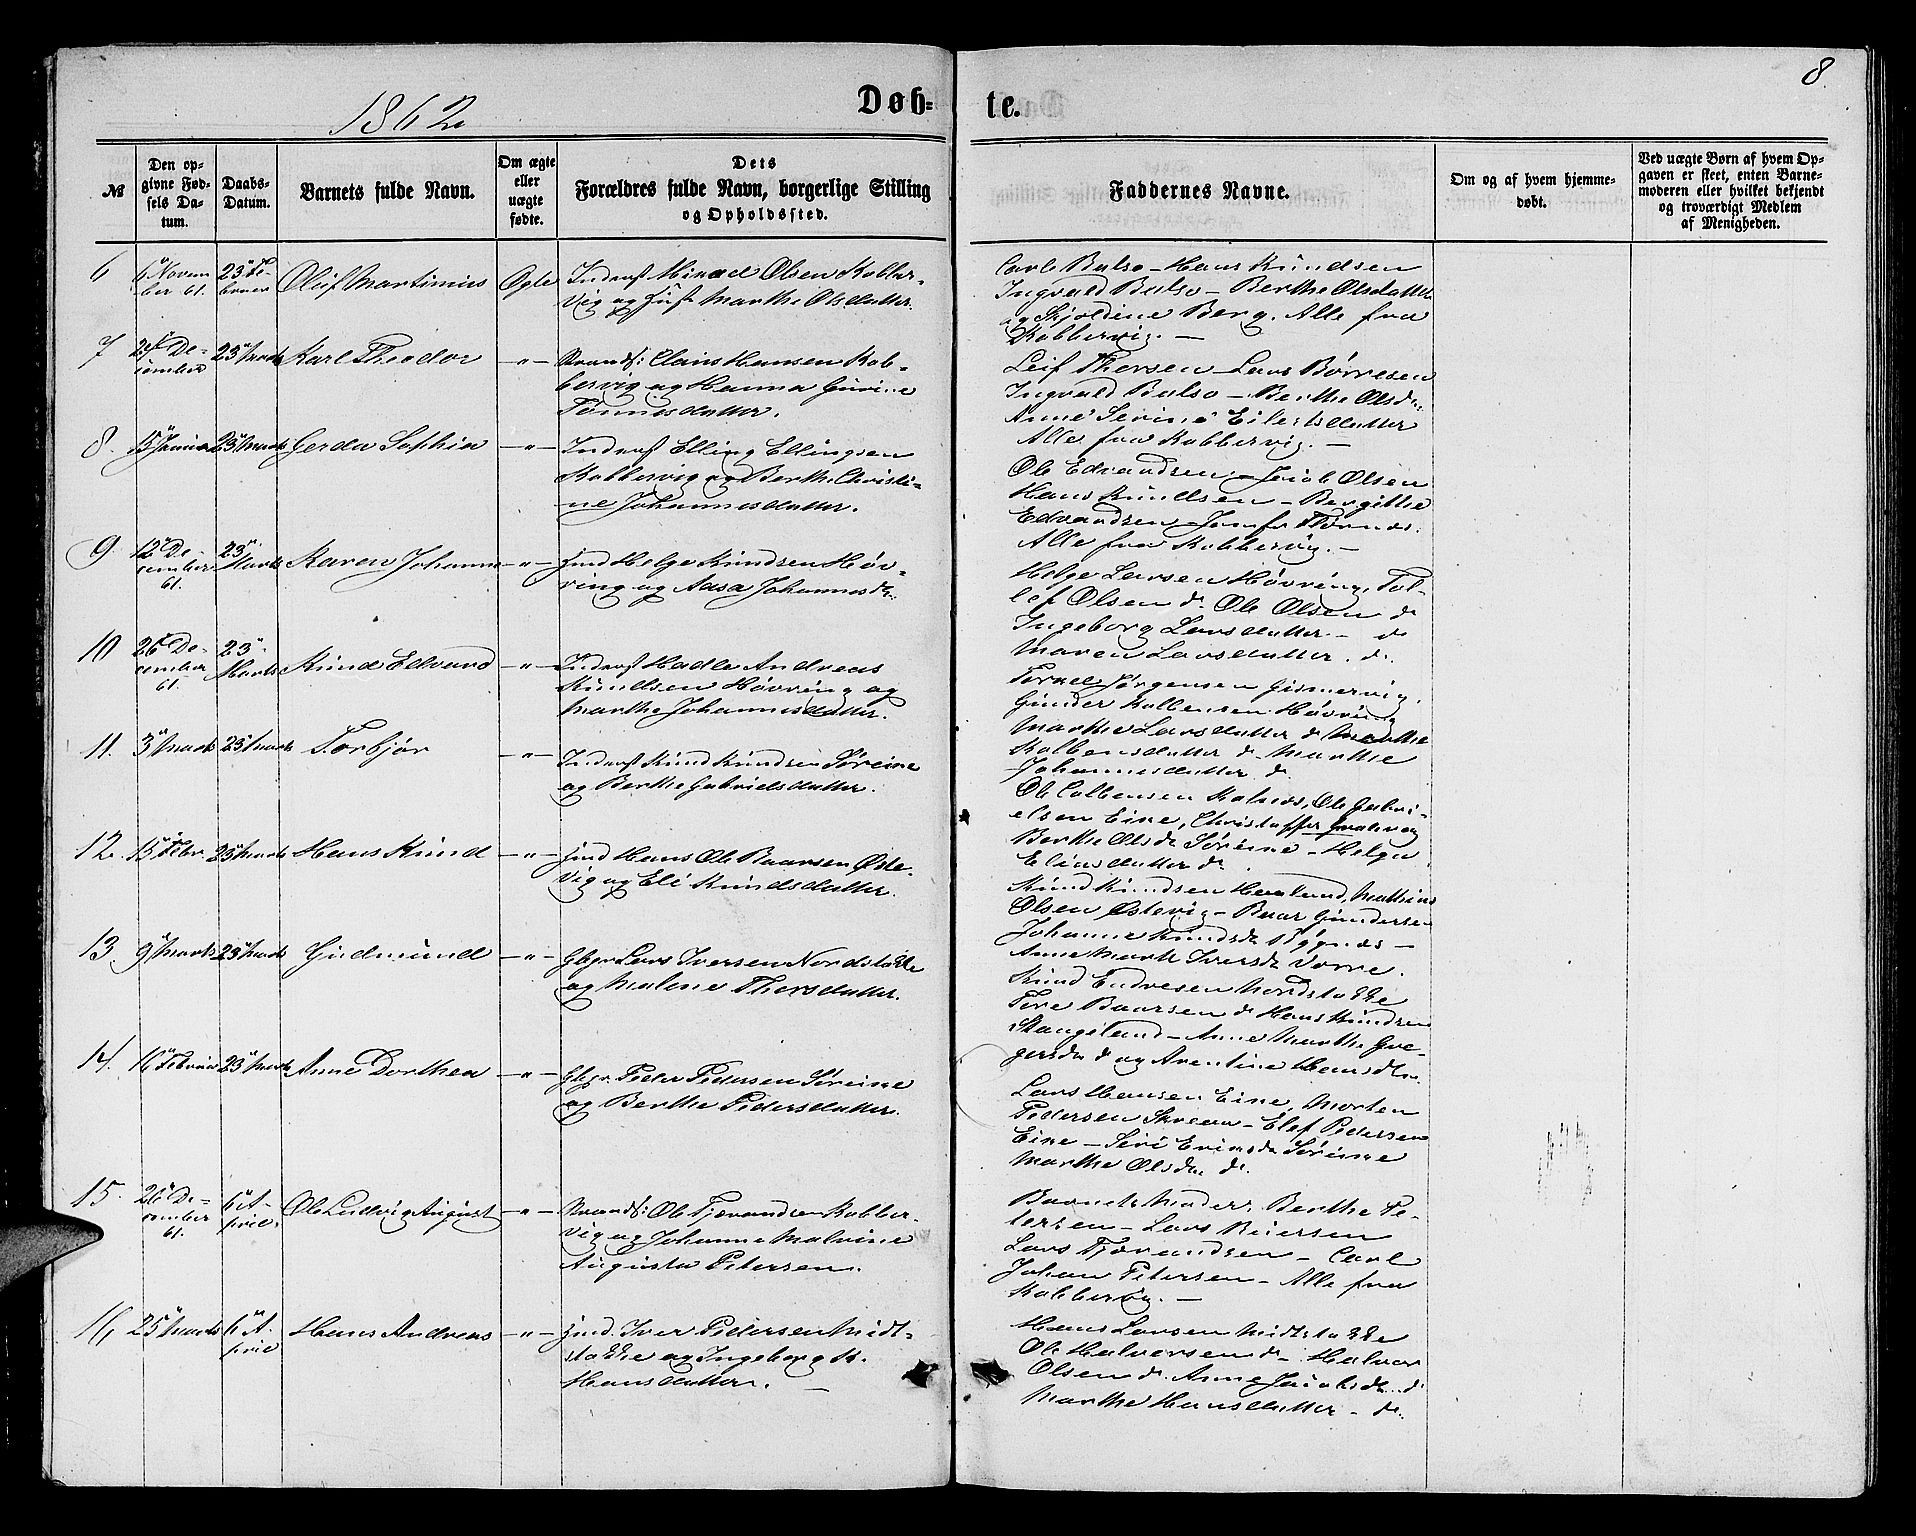 8.
1862
Døb-
te.
№
Den op-
givne Fød-
sels Da-
tum.
Daabs-
Datum.
Barnets fulde Navn.
Om ægte
eller
uægte
fødte.
Dets
Forældres fulde Navn, borgerlige Stilling
og Opholdssted.
Faddernes Navne.
Om og af hvem hjemme-
døbt.
Ved uægte Børn af hvem Op-
gaven er skeet, enten Barne-
moderen eller hvilket bekjendt
og troværdigt Medlem
af Menigheden.
6
Novem
ber 61.
23 Fe-
bruar
Oluf Martinius
Ægte
Inderst Olsen Kobber-
vig og Marthe Olsdatter.
Carl Bulso - Hans Knudsen
Ingvald Bulso - Berthe Olsdatter
og Skjoldine Berg. Alle fra
Kobbervig. -
7
De-
cember
23 Marts
Karl Theodor
-"-
Strands: Claus Hansen Kob-
bervig og Hanna Gurine
Tønnesdatter.
Leif Thorsen - Lars Børresen
Ingvald Bulso - Berthe Olsd.
Anne Serine Eilertsdatter
Alle fra Kobbervig. -
8.
15 Januar
23 Marts
Gerda Sophia
-"-
Inderst Elling Ellingsen
Kobbervig og Berthe Christi-
ne Johannesdatter.
Ole Edvardsen - Jacob Olsen
Hans Knudsen - Bergitte
Edvardsen - Jomfr
Alle fra Kobbervig. -
9.
12 De-
cember
61.
23
Marts
Karen Johanne
-"-
Gmd Helge Knudsen Høv-
ring og Aasa Johannesd.
Helge Larsen Høvring, Tol-
lef Olsen d. Ole Olsen d
Ingeborg Larsdatter - d
Maren Larsdatter. d.
10
26 De-
cember
61.
23
Marts
Knud Edvard
-"-
Inderst Hadle Andreas
Knudsen Høvring og
Marthe Johannesdatter.
Jørgensen Gismervig,
Gunder Kolbensen Høvring
Marthe Larsdatter d Marthe
Kolbensdatter d Marthe
Johannesdatter d.
11.
3 Marts
23 Marts
Torbjør
-"-
Inderst Knud Knudsen Søreine
og Berthe Gabrielsdatter.
Ole Colbensen Ole Gabri-
elsen Eine, Christoffer
Berthe Olsd. Søreine - Helga
Eliasdatter d.
12.
15 Febr
23 Marts
Hans Knud
-"-
Gmd Hans Ole Baarsen Øste-
vig og Eli Knudsdatter.
Knud Knudsen Mathias
Olsen Østevig - Baar Gundersen
Johanne Knudsd. -
Anne Marth Iversd. Vorre.
13.
9 Marts
23 Marts
Gudmund
-"-
Gbgr Lars Iversen Nordstokke
og Malene Thorsdatter.
Knud Endresen Nordstokke
Tore Baarsen d Hans Knudsen
Stangeland - Anne Marthe Gre-
gersd. d og Arentine Hansd.
14.
16 Februar
23 Marts
Anne Dorthea
-"-
Gbgr Peder Pedersen Søreine
og Berthe Pedersdatter.
Lars Hansen Eine, Morten
Pedersen - Elef Pedersen
Eine - Siri Søreine
Marthe Olsd. d.
15.
26 De-
cember
61.
6 A-
pril.
Ole Ludvig August
-"-
Strands: Ole Tjerandsen Kobber-
vig og Johanne Malvine
Augusta Petersen.
Barnets Moder, Berthe Pe-
tersen - Lars Reiersen
Lars Tjerandsen - Carl
Johan Petersen - Alle fra
Kobbervig. -
16
25 Marts
6 A-
pril
Hans Andreas
-"-
Gmd. Iver Pedersen Midt-
stokke og Ingeborg M.
Hansdatter. -
Hans Larsen Midtstokke
Ole Halvorsen d - Halvor
Olsen d. Anne Jacobsd. d
Marthe Hansdatter - d.